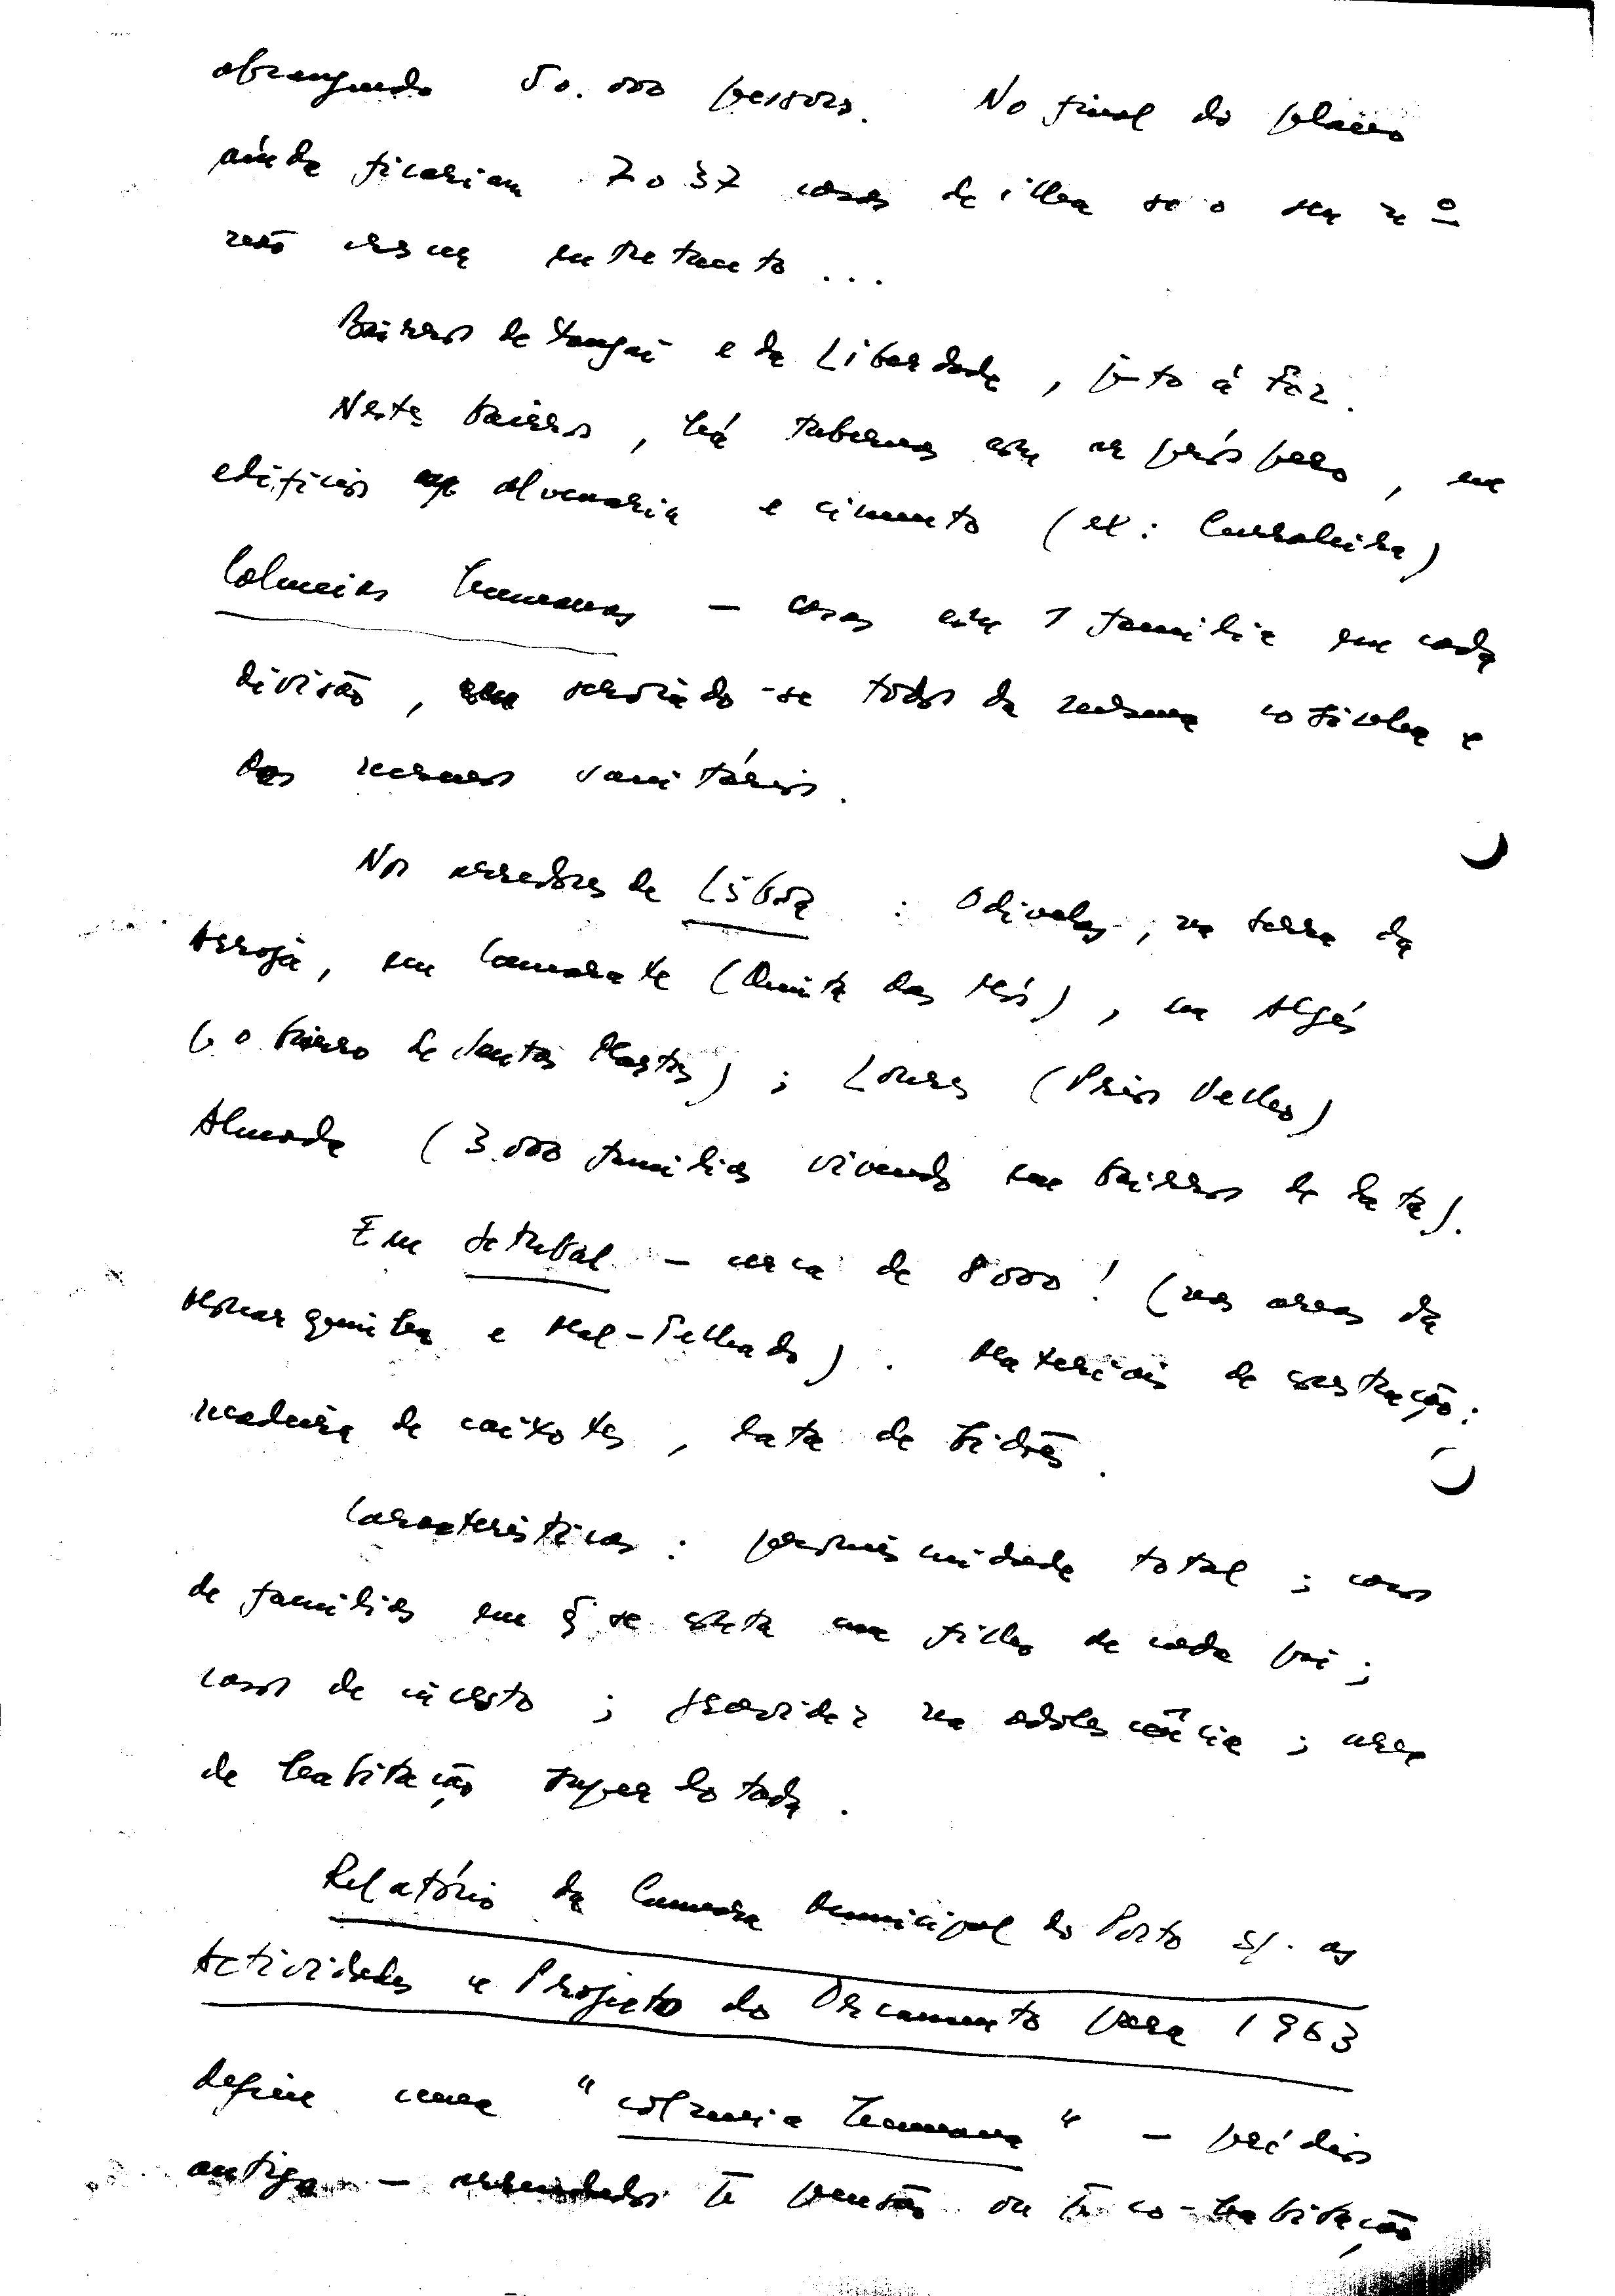 abrangendo 50.000 pessoas. No final do plano
ainda ficariam 7037 casas de ilha se o seu nº
não cresce entretanto...
Bairros de Xangai e da Liberdade, junto à Foz.
Neste bairro, há tabernas com ar próspero, em
edifícios de alvenaria e cimento (ex: Curraleira)
Colmeias humanas — casas com 1 família em cada
divisão, servindo-se todos da mesma cozinha e
dos mesmos sanitários.
Nos arredores de Lisboa: Odivelas, na serra da
Arroja, em Camarate (Quinta das Mós), em Algés
(o bairro de Santas Martas); Loures (Prior Velho)
Almada (3.000 famílias vivendo em bairros de lata).
Em Setúbal — cerca de 8000! (nas areas da
Monarquinha e Mal-Telhado). Materiais de construção:
madeira de caixotes, lata de bidões.
Características: promiscuidade total; casos
de famílias em q̃ se conta um filho de cada pai;
casos de incesto; gravidez na adolescência; area
de habitação superlotada.
Relatório da Camara Municipal do Porto s/. as
Actividades e Projeto do Orcamento para 1963
define uma "colmeia humana" — prédios
antigos — arrendados p̃ pensão ou p̃ co-habitação